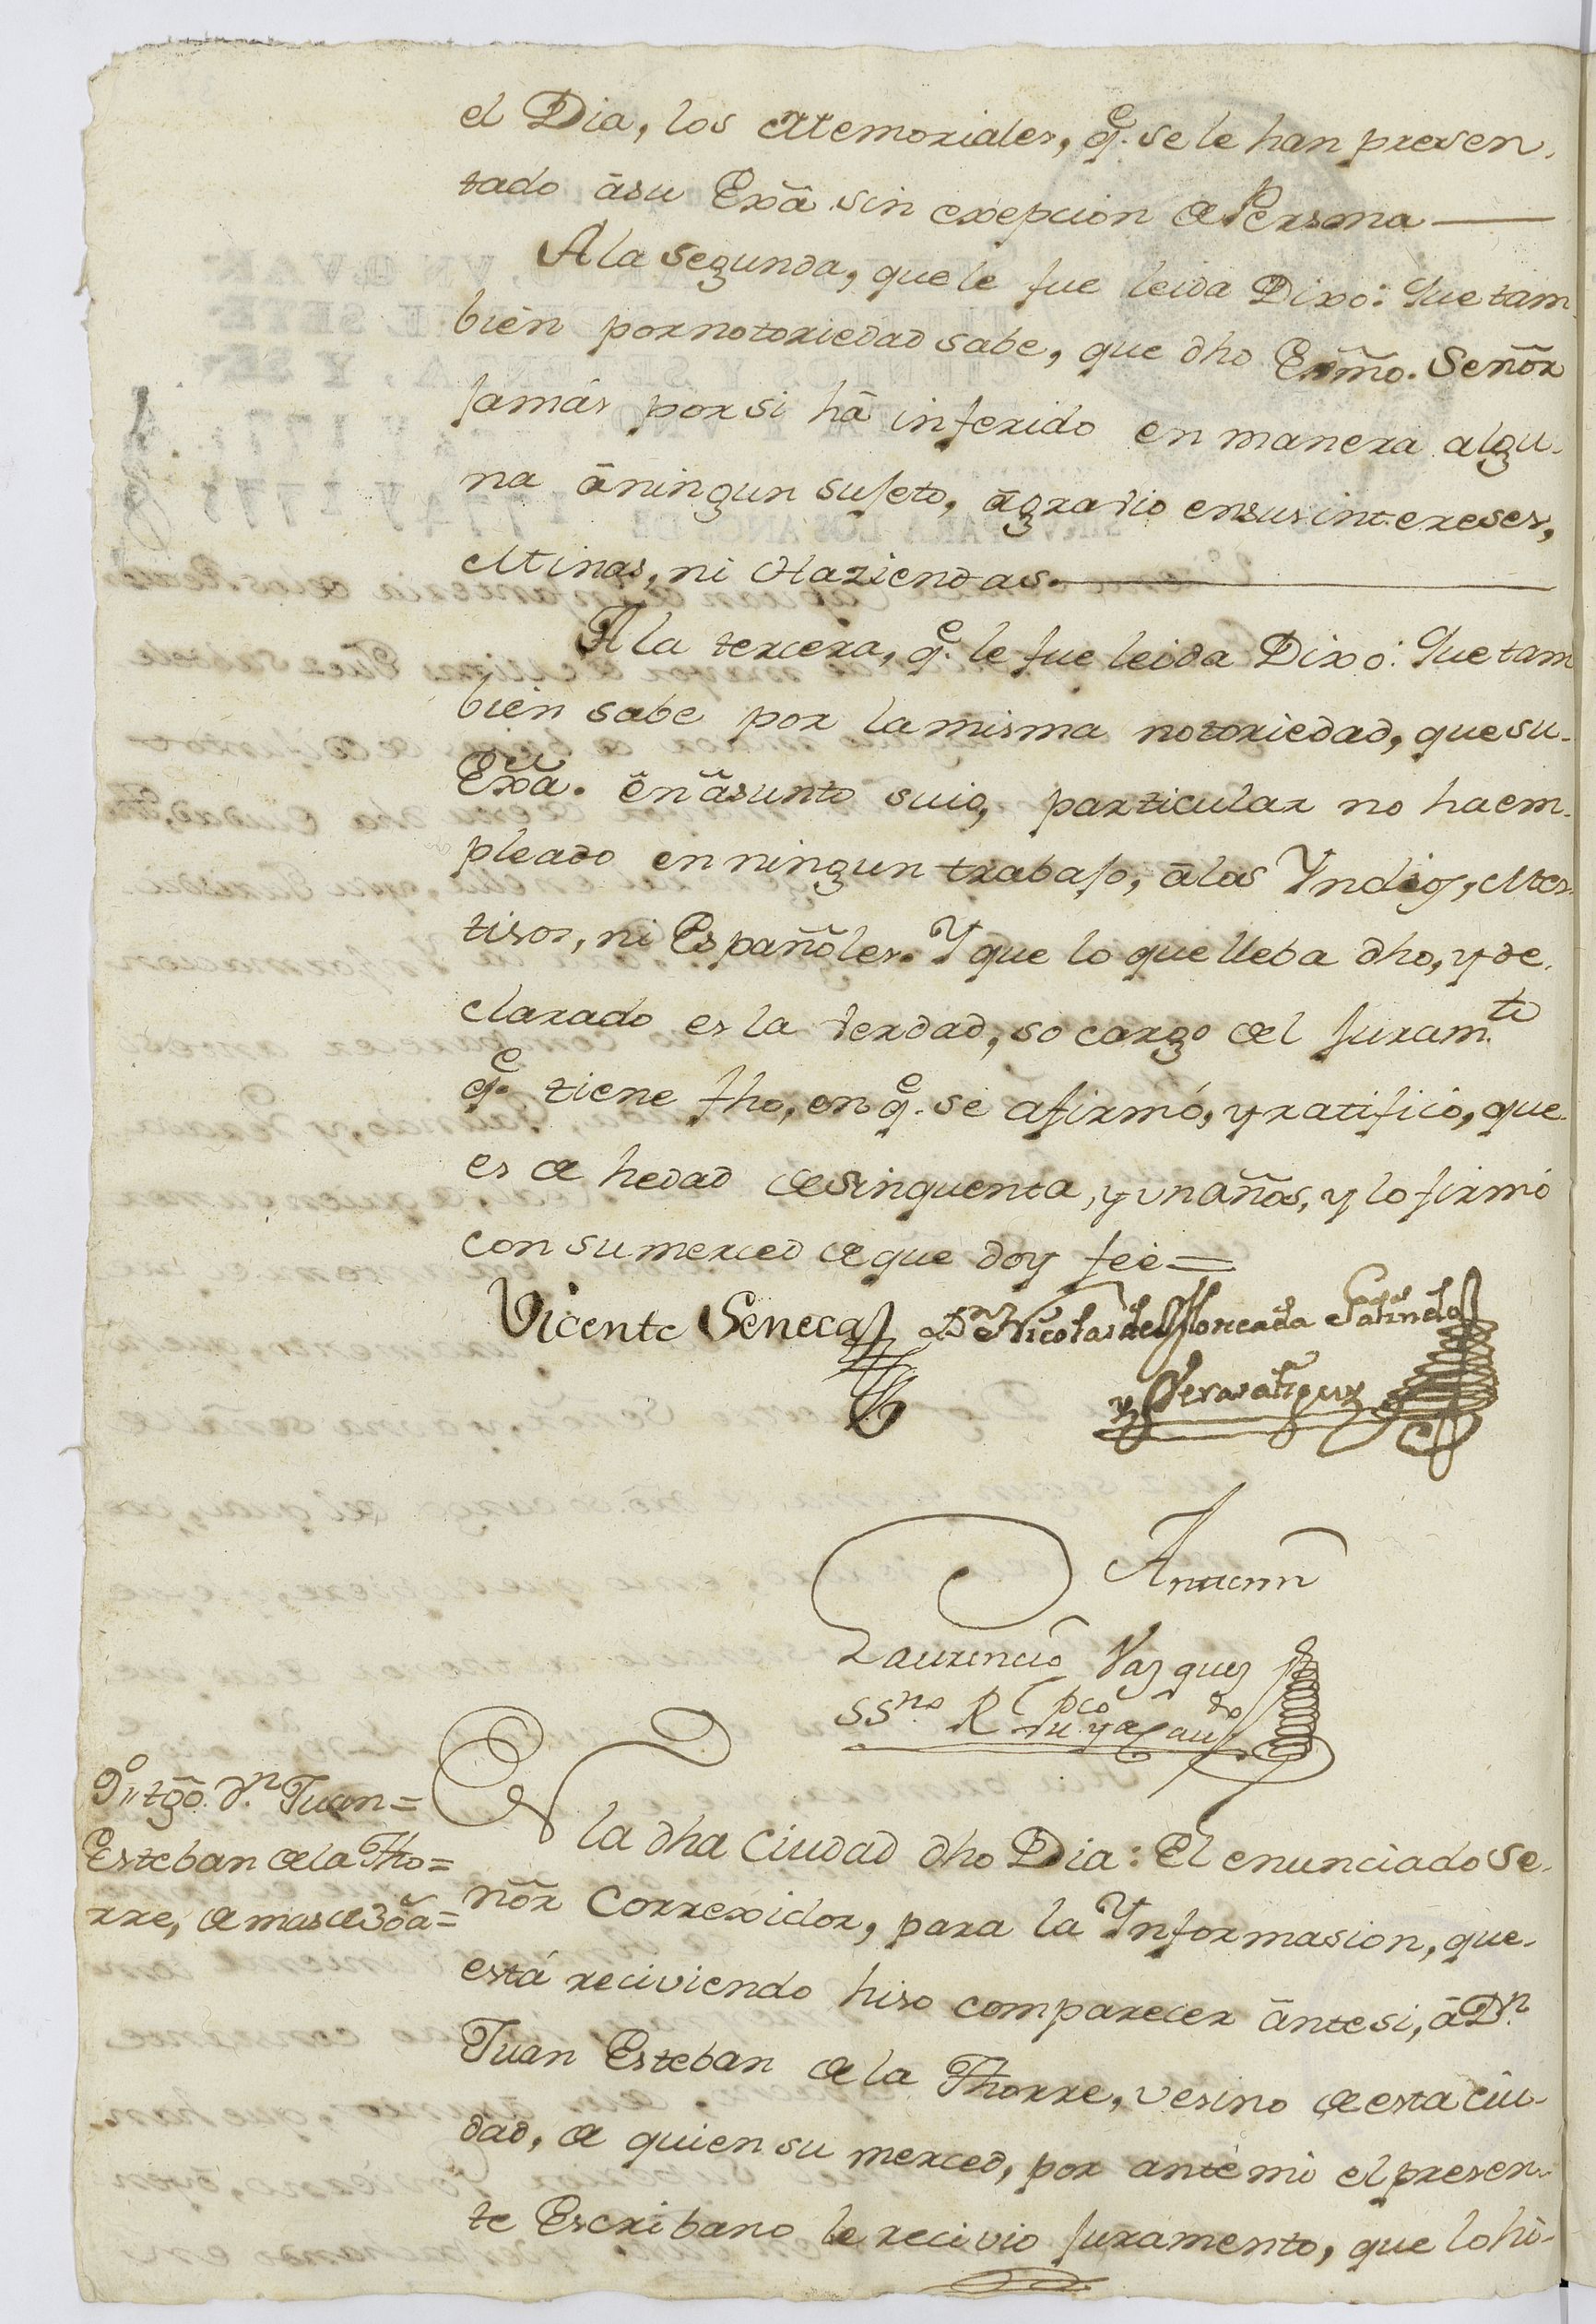 el Dia, los Memoriales, q.e se le han presen-
tado ā su Exā. sin exepcion de Persona
A la segunda, que le fue leida Dixo: Que tam-
bien por notoriedad sabe, que dho Exm̃o. Señor
Jamás por si hā inferido en manera algu-
na ā ningun sujeto, āgravio en sus intereses,
Minas, ni Haziendas.
A la tercera, q.e le fue leida Dixo: Que tam
bien sabe por la misma notoriedad, que su-
Exā. en āsunto suio, particular no ha em-
pleado en ningun trabajo, ā los Yndios, Mes-
tisos, ni Españoles. Y que lo que lleba dho, y de-
clarado es la verdad, so cargo del juram.to
q.e tiene fho, en q.e se afirmó, y ratificó, que
es de hedad de sinquenta, y un años, y lo firmó
con su merced de que doy feé =
Vicente Seneca Dn. Nicolas de Moncada Galindo
y
Antemi
Laurencio Vazquez
SSno. R.l pco
9.o tgõ. dn. Juan =
Esteban de la Tho =
rre, de mas de 30 ā =
En la dha Ciudad dho Dia: El enunciado Se-
ñor Correxidor, para la Ynformasion, que-
está reciviendo hiso comparecer ānte si, ā Dn.
Juan Esteban de la Thorre, vesino de esta Ciu-
dad, de quien su merced, por ante mi el presen-
te Escribano le recivio juramento, que lo hi-